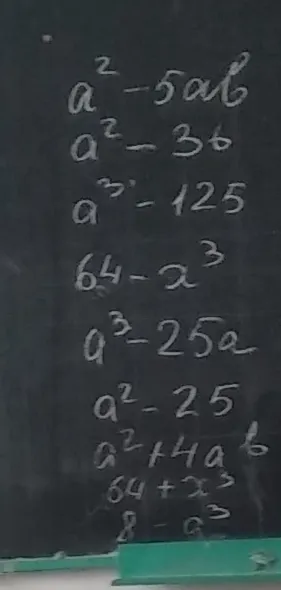 a² - 5ab
a² - 36
a³ - 125
64 - x³
a³ - 25a
a² - 25
a² + 4ab
64 + x³
8 - a³